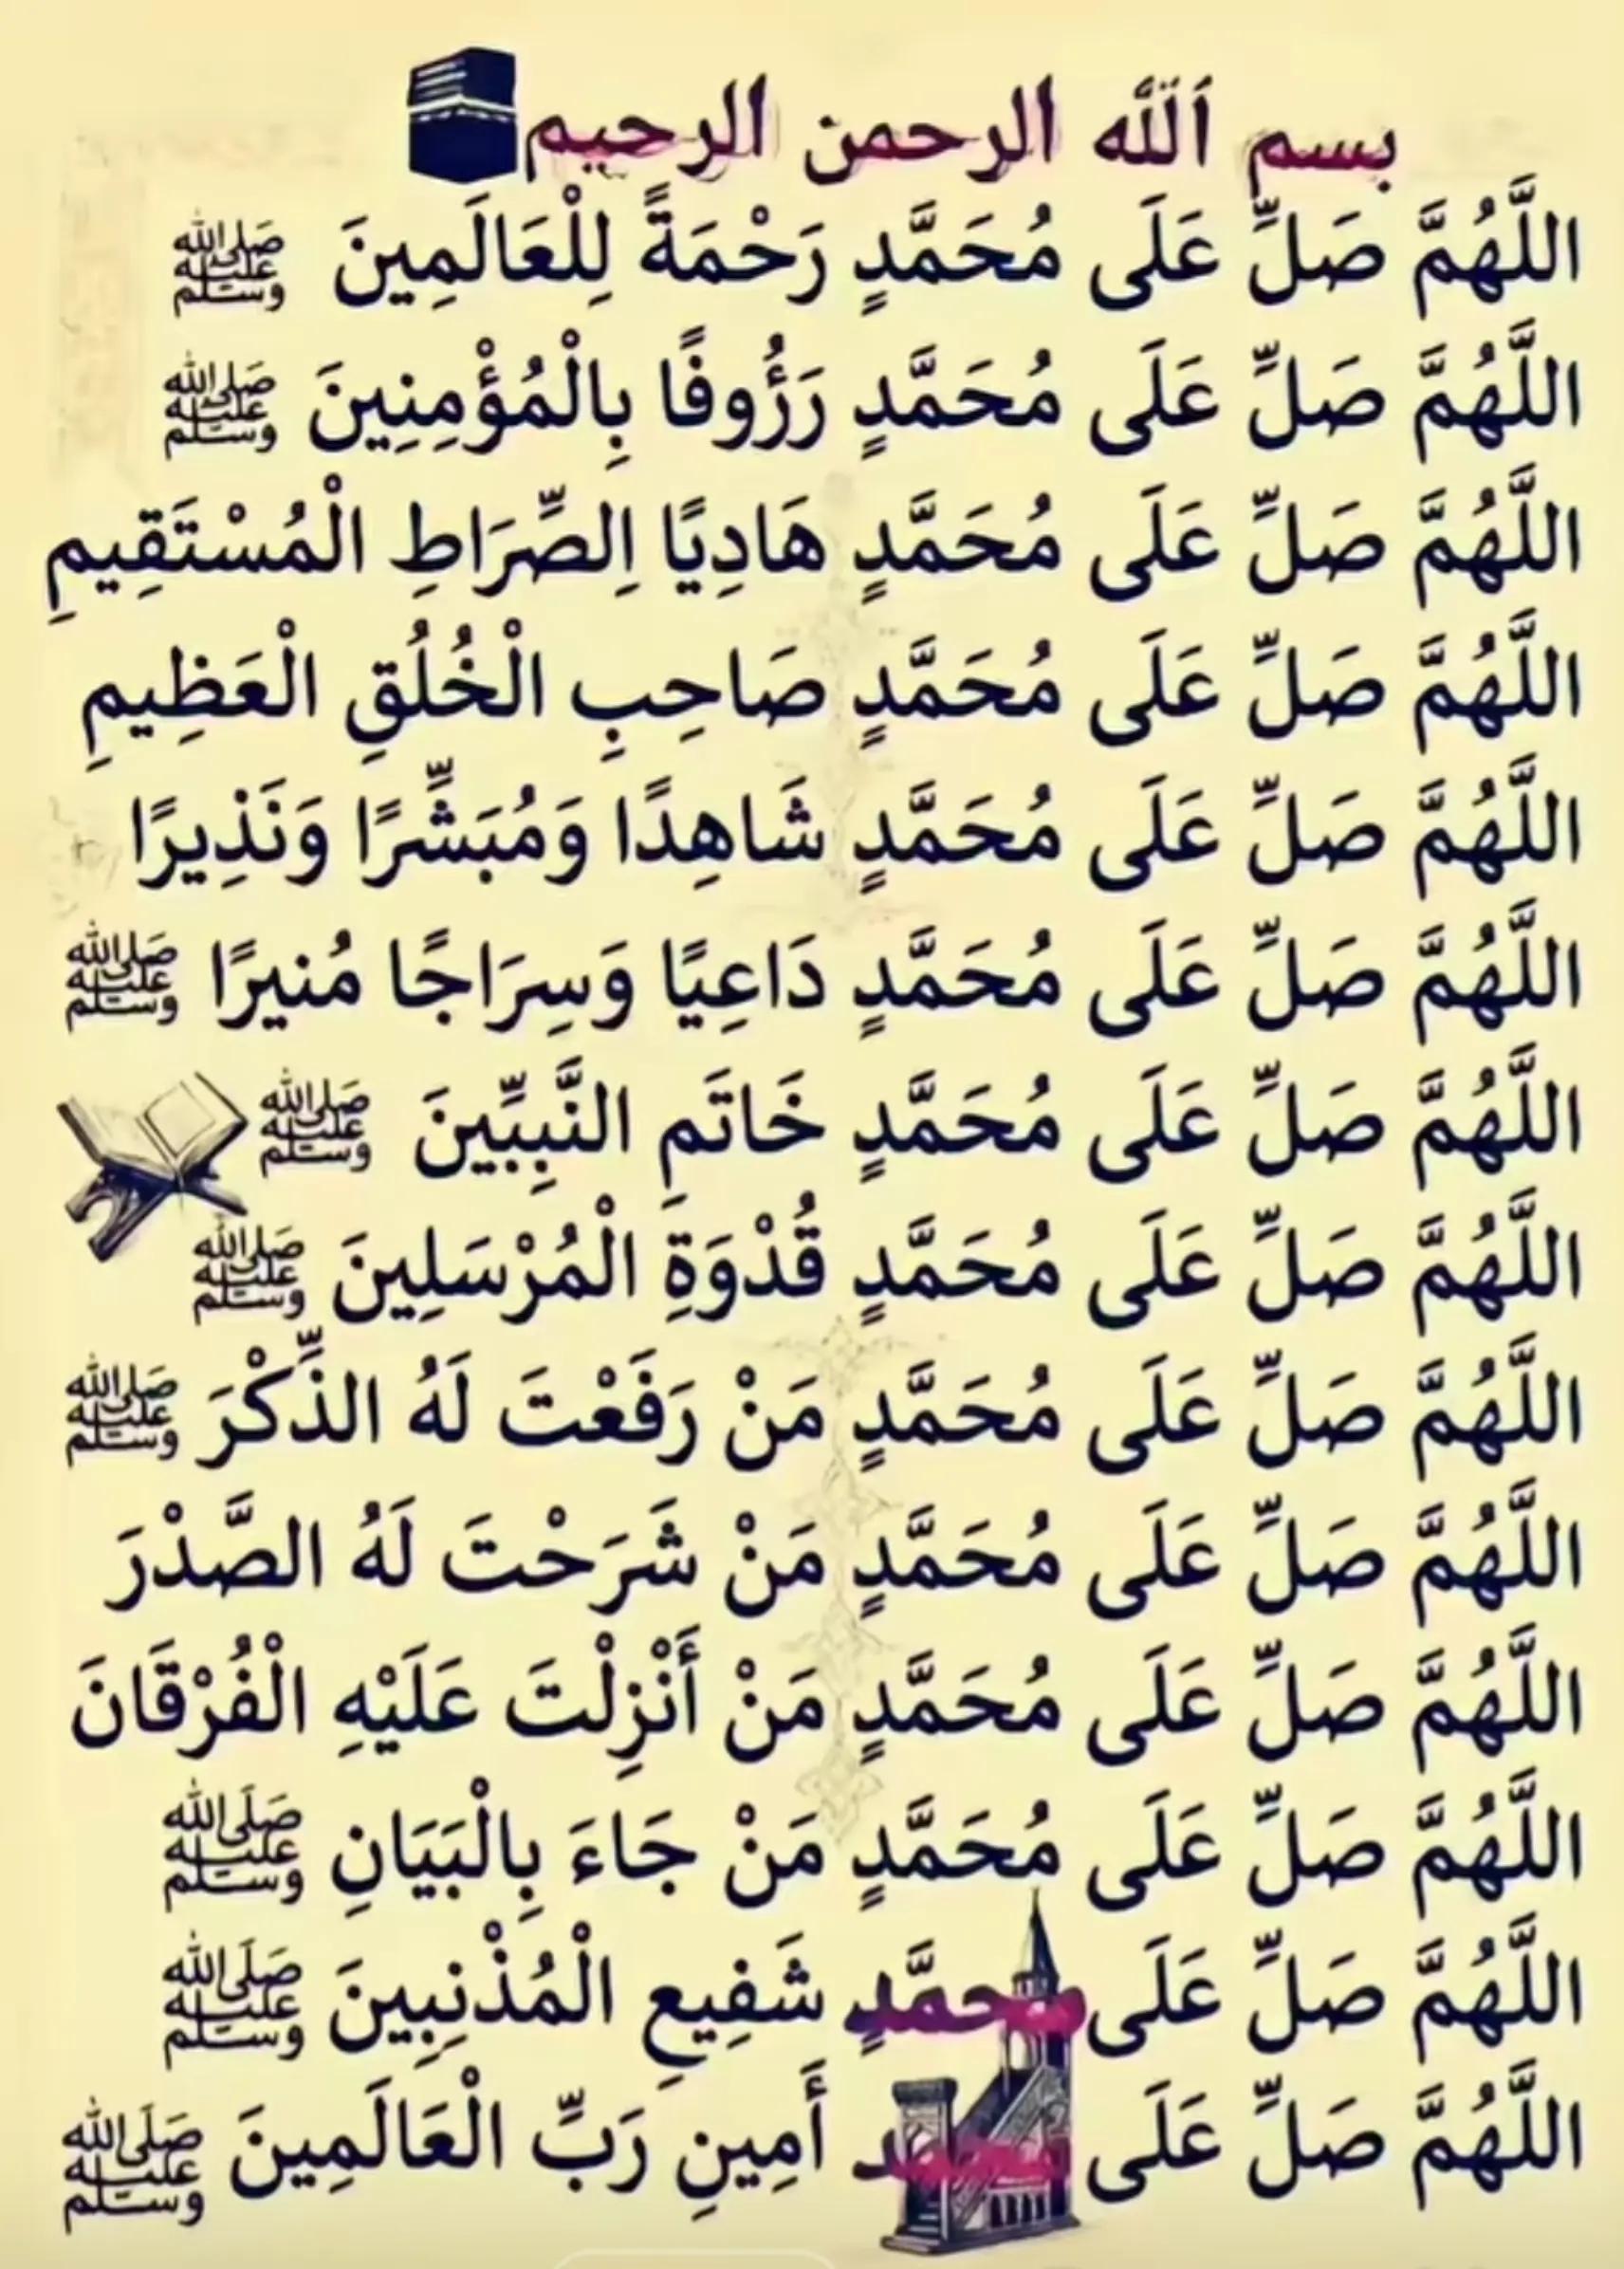 بسم ٱللّٰه الرحمن الرحيم
اللَّهُمَّ صَلِّ عَلَى مُحَمَّدٍ رَحْمَةً لِلْعَالَمِينَ ﷺ
اللَّهُمَّ صَلِّ عَلَى مُحَمَّدٍ رَؤُوفًا بِالْمُؤْمِنِينَ ﷺ
اللَّهُمَّ صَلِّ عَلَى مُحَمَّدٍ هَادِيًا اِلصِّرَاطِ الْمُسْتَقِيمِ
اللَّهُمَّ صَلِّ عَلَى مُحَمَّدٍ صَاحِبِ الْخُلُقِ الْعَظِيمِ
اللَّهُمَّ صَلِّ عَلَى مُحَمَّدٍ شَاهِدًا وَمُبَشِّرًا وَنَذِيرًا
اللَّهُمَّ صَلِّ عَلَى مُحَمَّدٍ دَاعِيًا وَسِرَاجًا مُنيرًا ﷺ
اللَّهُمَّ صَلِّ عَلَى مُحَمَّدٍ خَاتَمِ النَّبِيِّينَ ﷺ
اللَّهُمَّ صَلِّ عَلَى مُحَمَّدٍ قُدْوَةِ الْمُرْسَلِينَ ﷺ
اللَّهُمَّ صَلِّ عَلَى مُحَمَّدٍ مَنْ رَفَعْتَ لَهُ الذِّكْرَ ﷺ
اللَّهُمَّ صَلِّ عَلَى مُحَمَّدٍ مَنْ شَرَحْتَ لَهُ الصَّدْرَ
اللَّهُمَّ صَلِّ عَلَى مُحَمَّدٍ مَنْ أَنْزِلْتَ عَلَيْهِ الْفُرْقَانَ
اللَّهُمَّ صَلِّ عَلَى مُحَمَّدٍ مَنْ جَاءَ بِالْبَيَانِ ﷺ
اللَّهُمَّ صَلِّ عَلَى محمَّدٍ شَفِيعِ الْمُذْنِبِينَ ﷺ
اللَّهُمَّ صَلِّ عَلَى محمد أَمِينِ رَبِّ الْعَالَمِينَ ﷺ